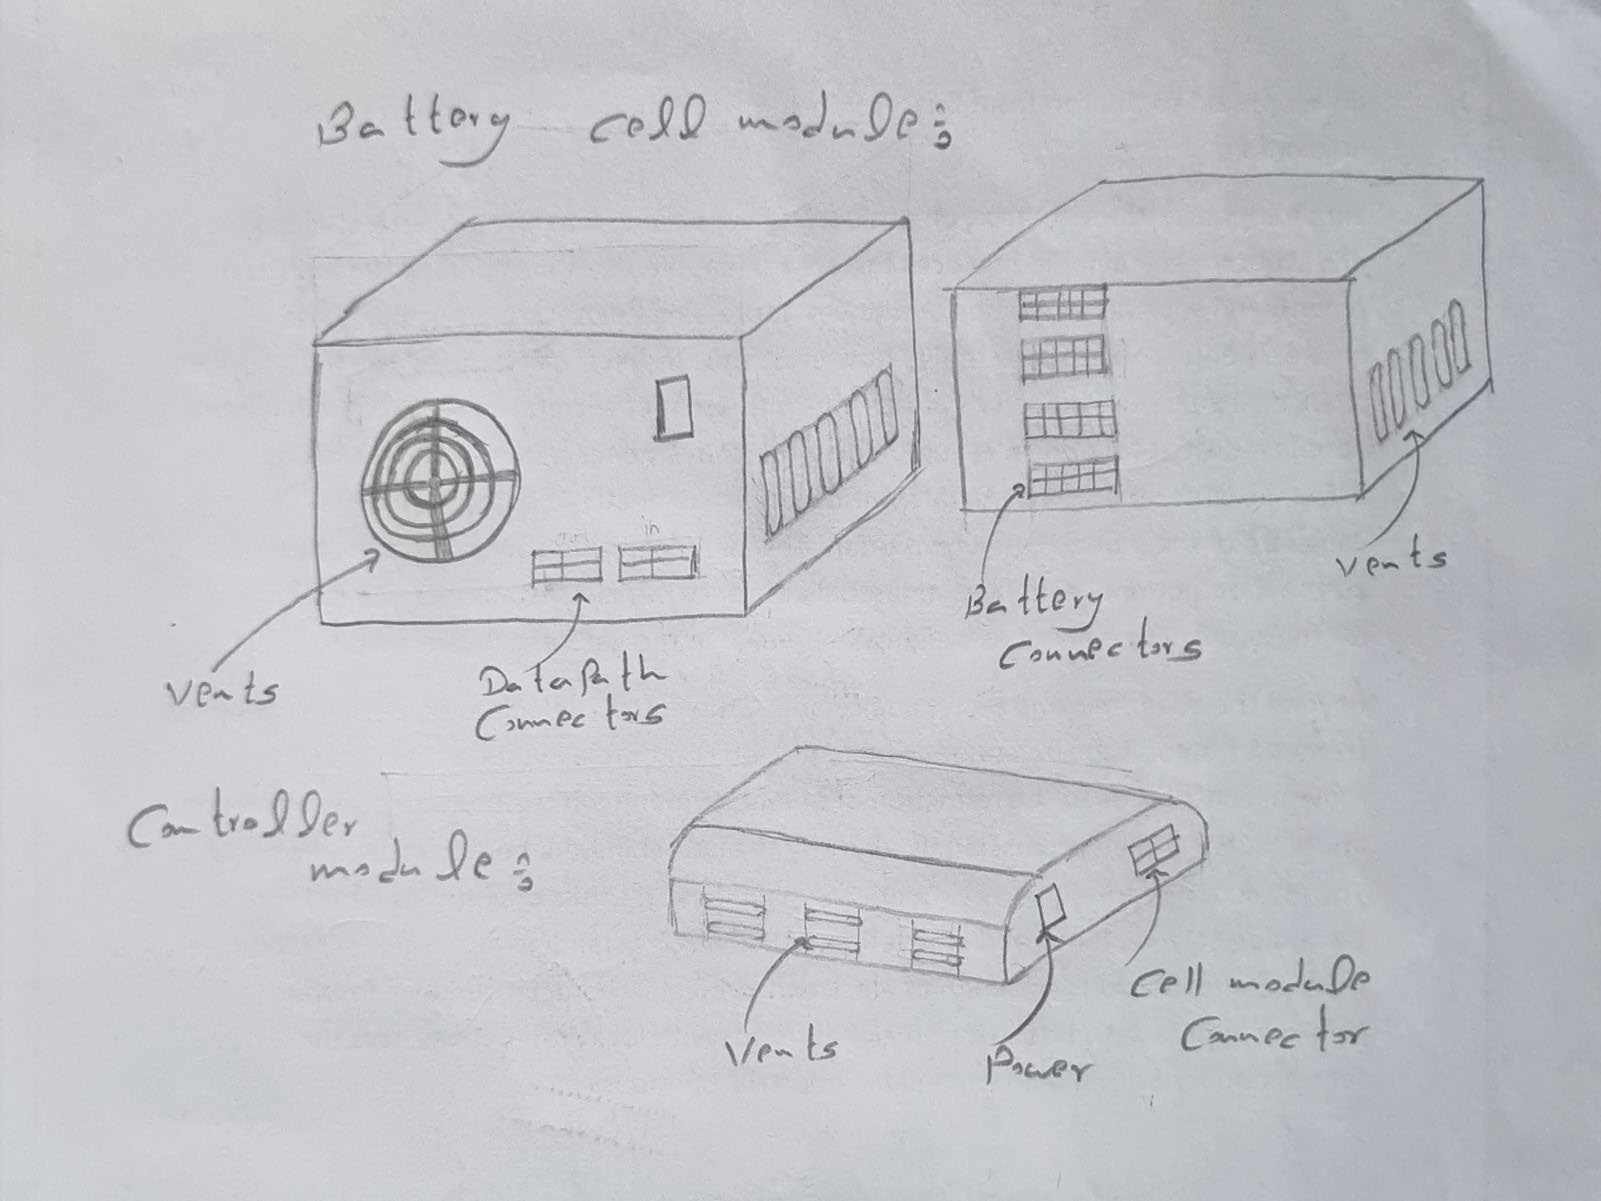 Battery cell module:
out in
Vents
Data Path
Connectors
Battery
Connectors
Vents
Controller
module:
Vents
Power
Cell module
Connector